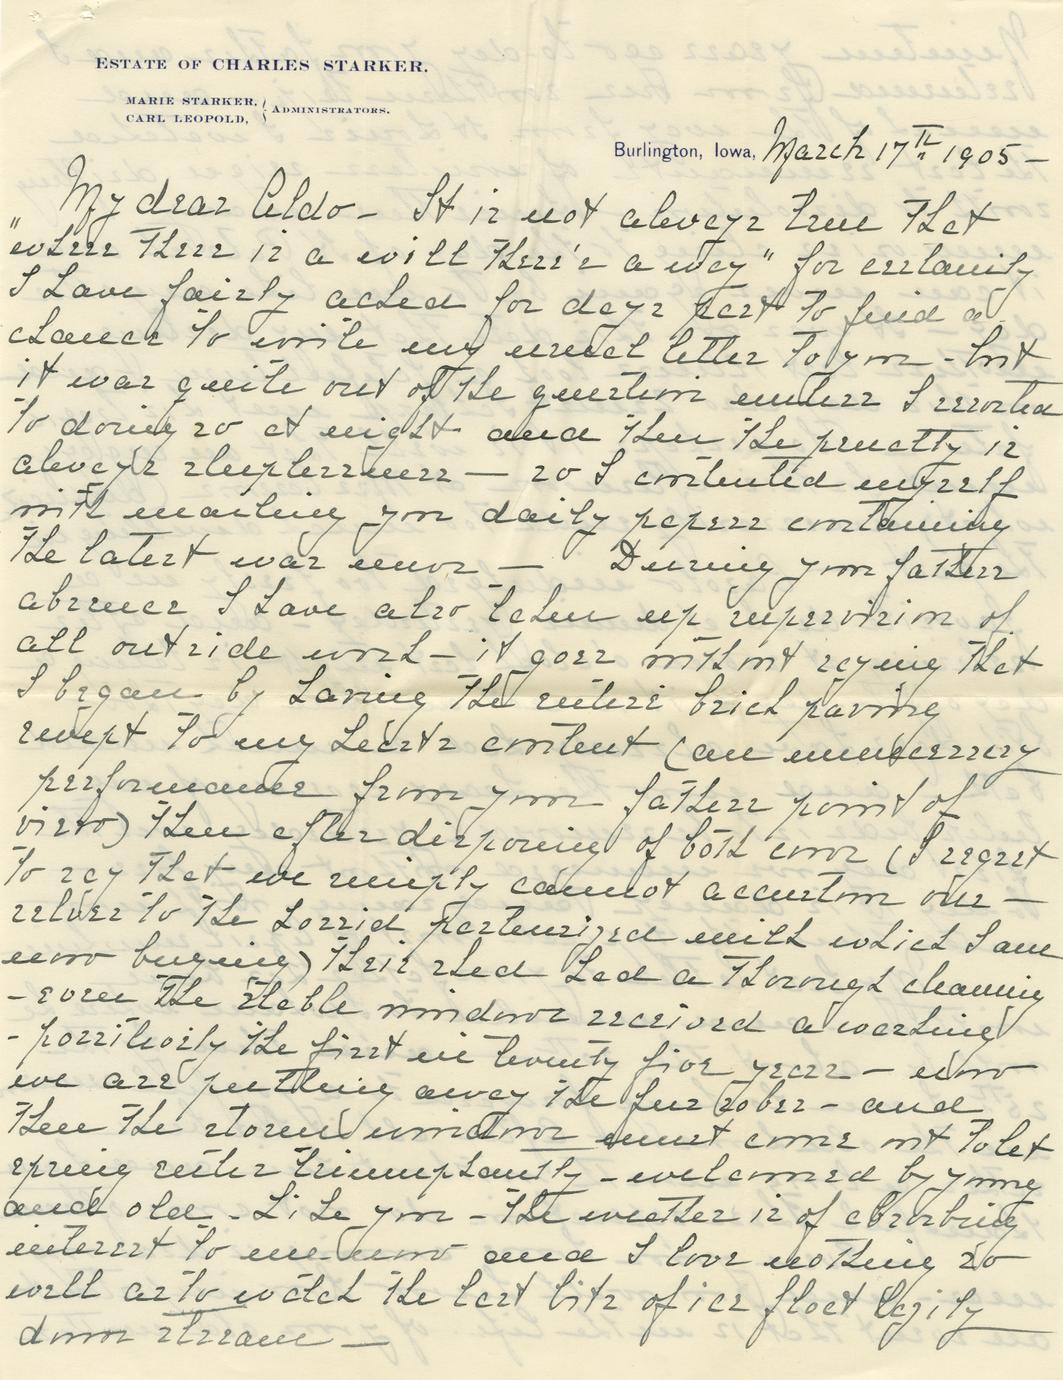 ESTATE OF CHARLES STARKER.
MARIE STARKER,
CARL LEOPOLD, } ADMINISTRATORS.
Burlington, Iowa, March 17th 1905 —
My dear Aldo — It is not always true that
"where there is a will there's a way" for certainly
I have fairly ached for days past to find a
chance to write my usual letter to you - but
it was quite out of the question unless I resorted
to doing so at night and then the penalty is
always sleeplessness — so I contented myself
with mailing you daily papers containing
the latest war news — During your fathers
absence I have also taken up supervision of
all outside work — it goes without saying that
I began by having the entire brick paving
swept to my hearts content (an unnecessary
performance from your fathers point of
view) then after disposing of both cows (I regret
to say that we simply cannot accustom our —
selves to the horrid pasteurized milk which I am
now buying) their shed had a thorough cleaning
- even the stable windows received a washing
- possitively the first in twenty five years — now
we are putting away the fur robes - and
then the storm windows must come out to let
spring enter triumphantly - welcomed by young
and old - Like you - the weather is of absorbing
interest to me now and I love nothing so
well as to watch the last bits of ice float lazily
down stream —